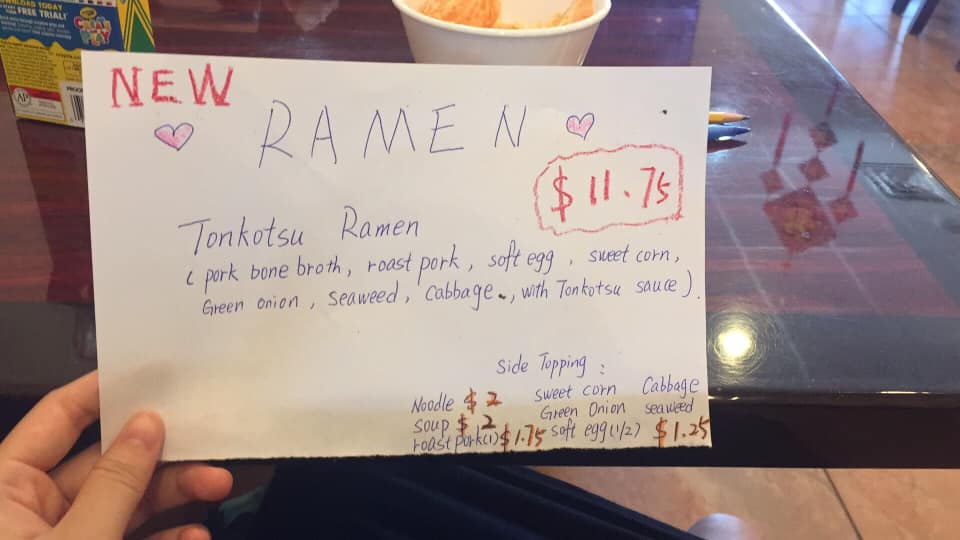 DOWNLOAD TODAY
FREE TRIAL!
AP
NEW
RAMEN
$11.75
Tonkotsu Ramen
( pork bone broth, roast pork, soft egg, sweet corn,
Green onion, seaweed, cabbage, with Tonkotsu sauce).
Side Topping :
Noodle $2 sweet corn Cabbage
soup $2 Green Onion seaweed
roast pork(1) $1.75 soft egg (1/2) $1.25